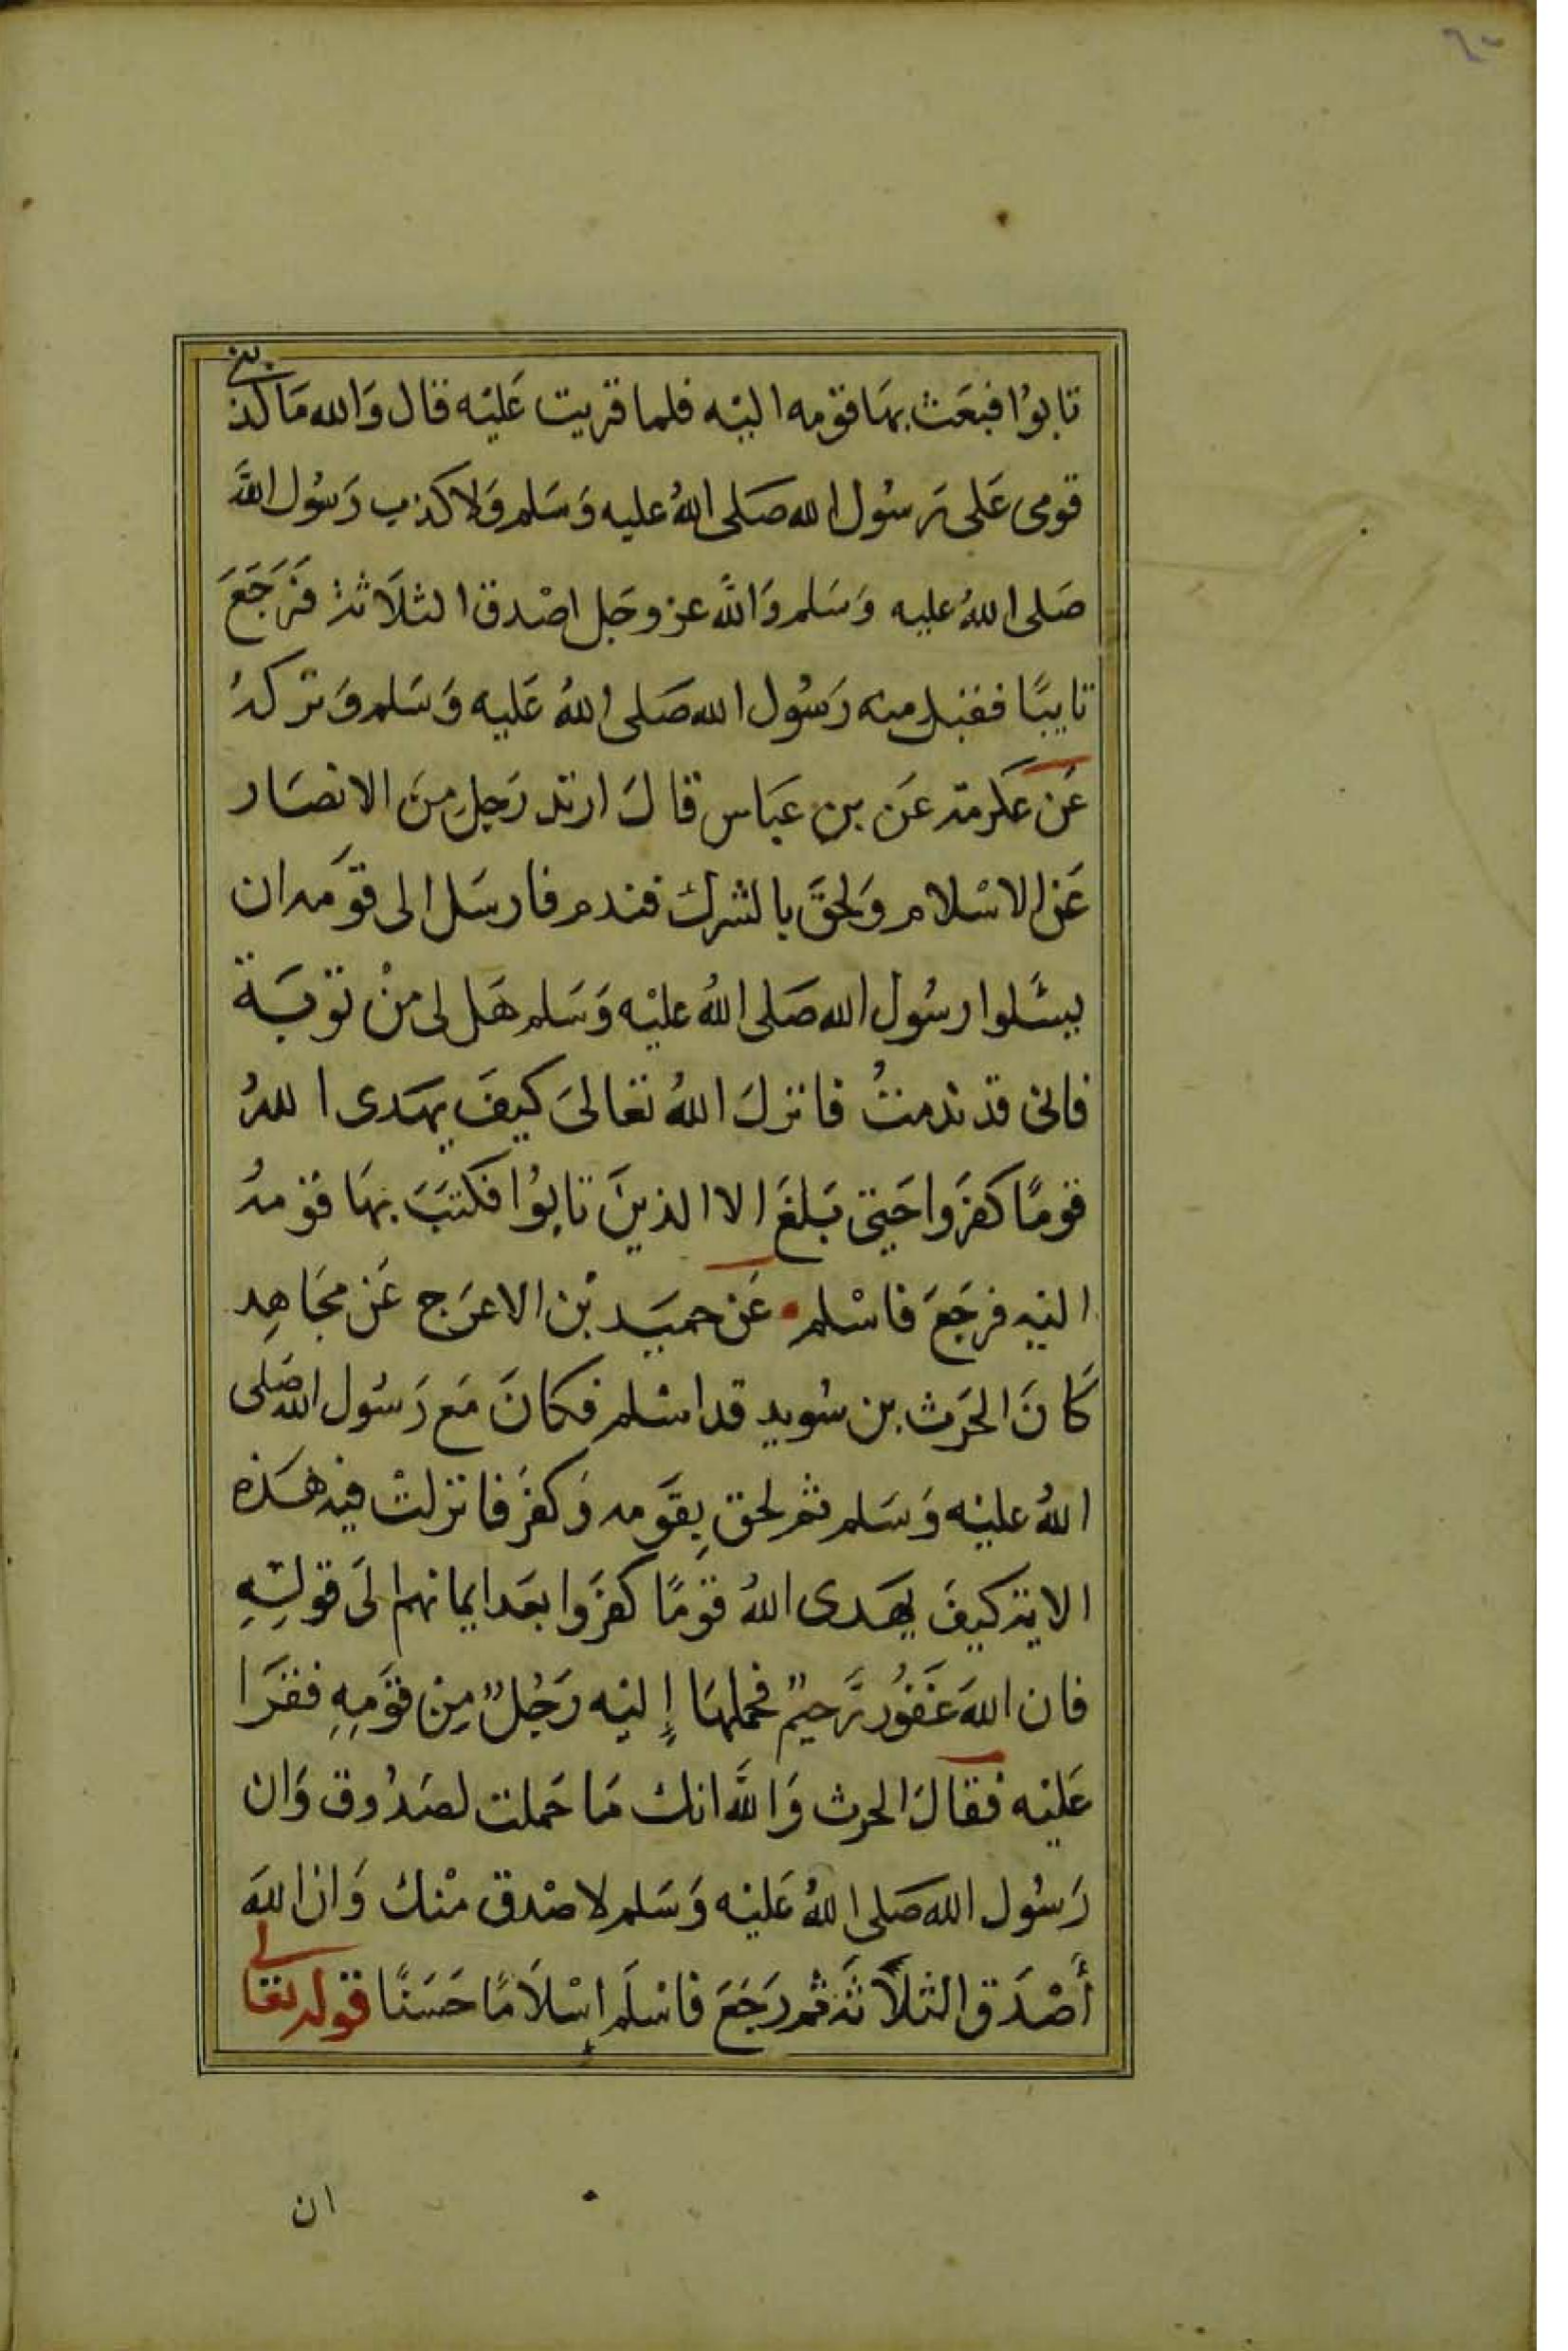 ٦٠
تابوُا فبعَث بهَا قومه اليْه فلما قريت عَليْه قال وَالله مَا كذبنى
قومى عَلى رَسُول الله صَلى اللهُ عليه وَسَلم وَلا كذب رَسُول اللهَّ
صَلى اللهُ عليه وَسَلم وَاللهَّ عز وجَل اصْدق الثلاَثة فَرَجَعَ
تايبًا فقبل منه رَسُول الله صَلى اللهُ عَليه وَسَلم وَتركهُ
عَن عكرمة عَن بن عبَاس قالَ ارتد رَجل مِنَ الانصَار
عَن الاسْلام وَلحقَ بالشرك فندم فارسَل الى قوَمه ان
يسَٔلوا رسُول الله صَلى اللهُ عليْه وَسَلم هَل لى منْ توبَة
فانى قد ندمتُ فانزلَ اللهُ تعَالىَ كيفَ يهَدى اللهُ
قومًا كفرَوا حَتى بَلغَ الا الذينَ تابوُا فكتبَ بهَا قوْمهُ
اليه فرجَعَ فاسْلم • عَن حميَد بْن الاعرَج عَن مجَاهِد
كَانَ الحرَث بن سُويد قد اسْلم فكانَ مَع رَسُول الله صَلى
اللهُ عليْه وَسَلم ثم لحق بِقوَمه وَكفرَ فانزلتْ فيْه هَذه
الاية كيفَ يهَدى اللهُ قوْمًا كفرَوا بعَد ايمانهم الىَ قولِهِ
فان اللهَ غَفوُر رَّحيمٌ فحملهَا إليْه رَجُلٌ مِن قوَمِهِ فقرَا
عَليْه فقالَ الحرث وَاللهَّ انك مَا حَملت لصَدُوق وَان
رَسُول الله صَلى اللهُ عَليْه وَسَلم لاصْدق مْنك وَان اللهَ
أَصْدَق الثلاَثة ثم رَجَعَ فاسْلَم اِسْلاَمًا حَسَنًا قوله تعالى
ان